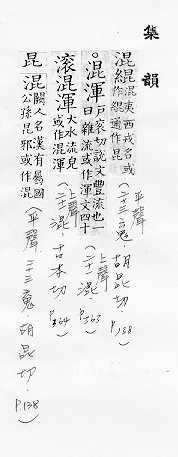 集韻
混緄混夷西戎名或作緄通作昆
(平聲 二十三魂 胡昆切 P.138)
○混渾戶衮切說文豐流也一曰雜流或作渾文四十
(上聲 二十一混 P.363)
滚混渾大水流皃或作混渾
(上聲 二十一混 古本切 P.364)
昆混闕人名漢有屬國公孫昆邪或作混
(平聲 二十三魂 胡昆切 P.138)